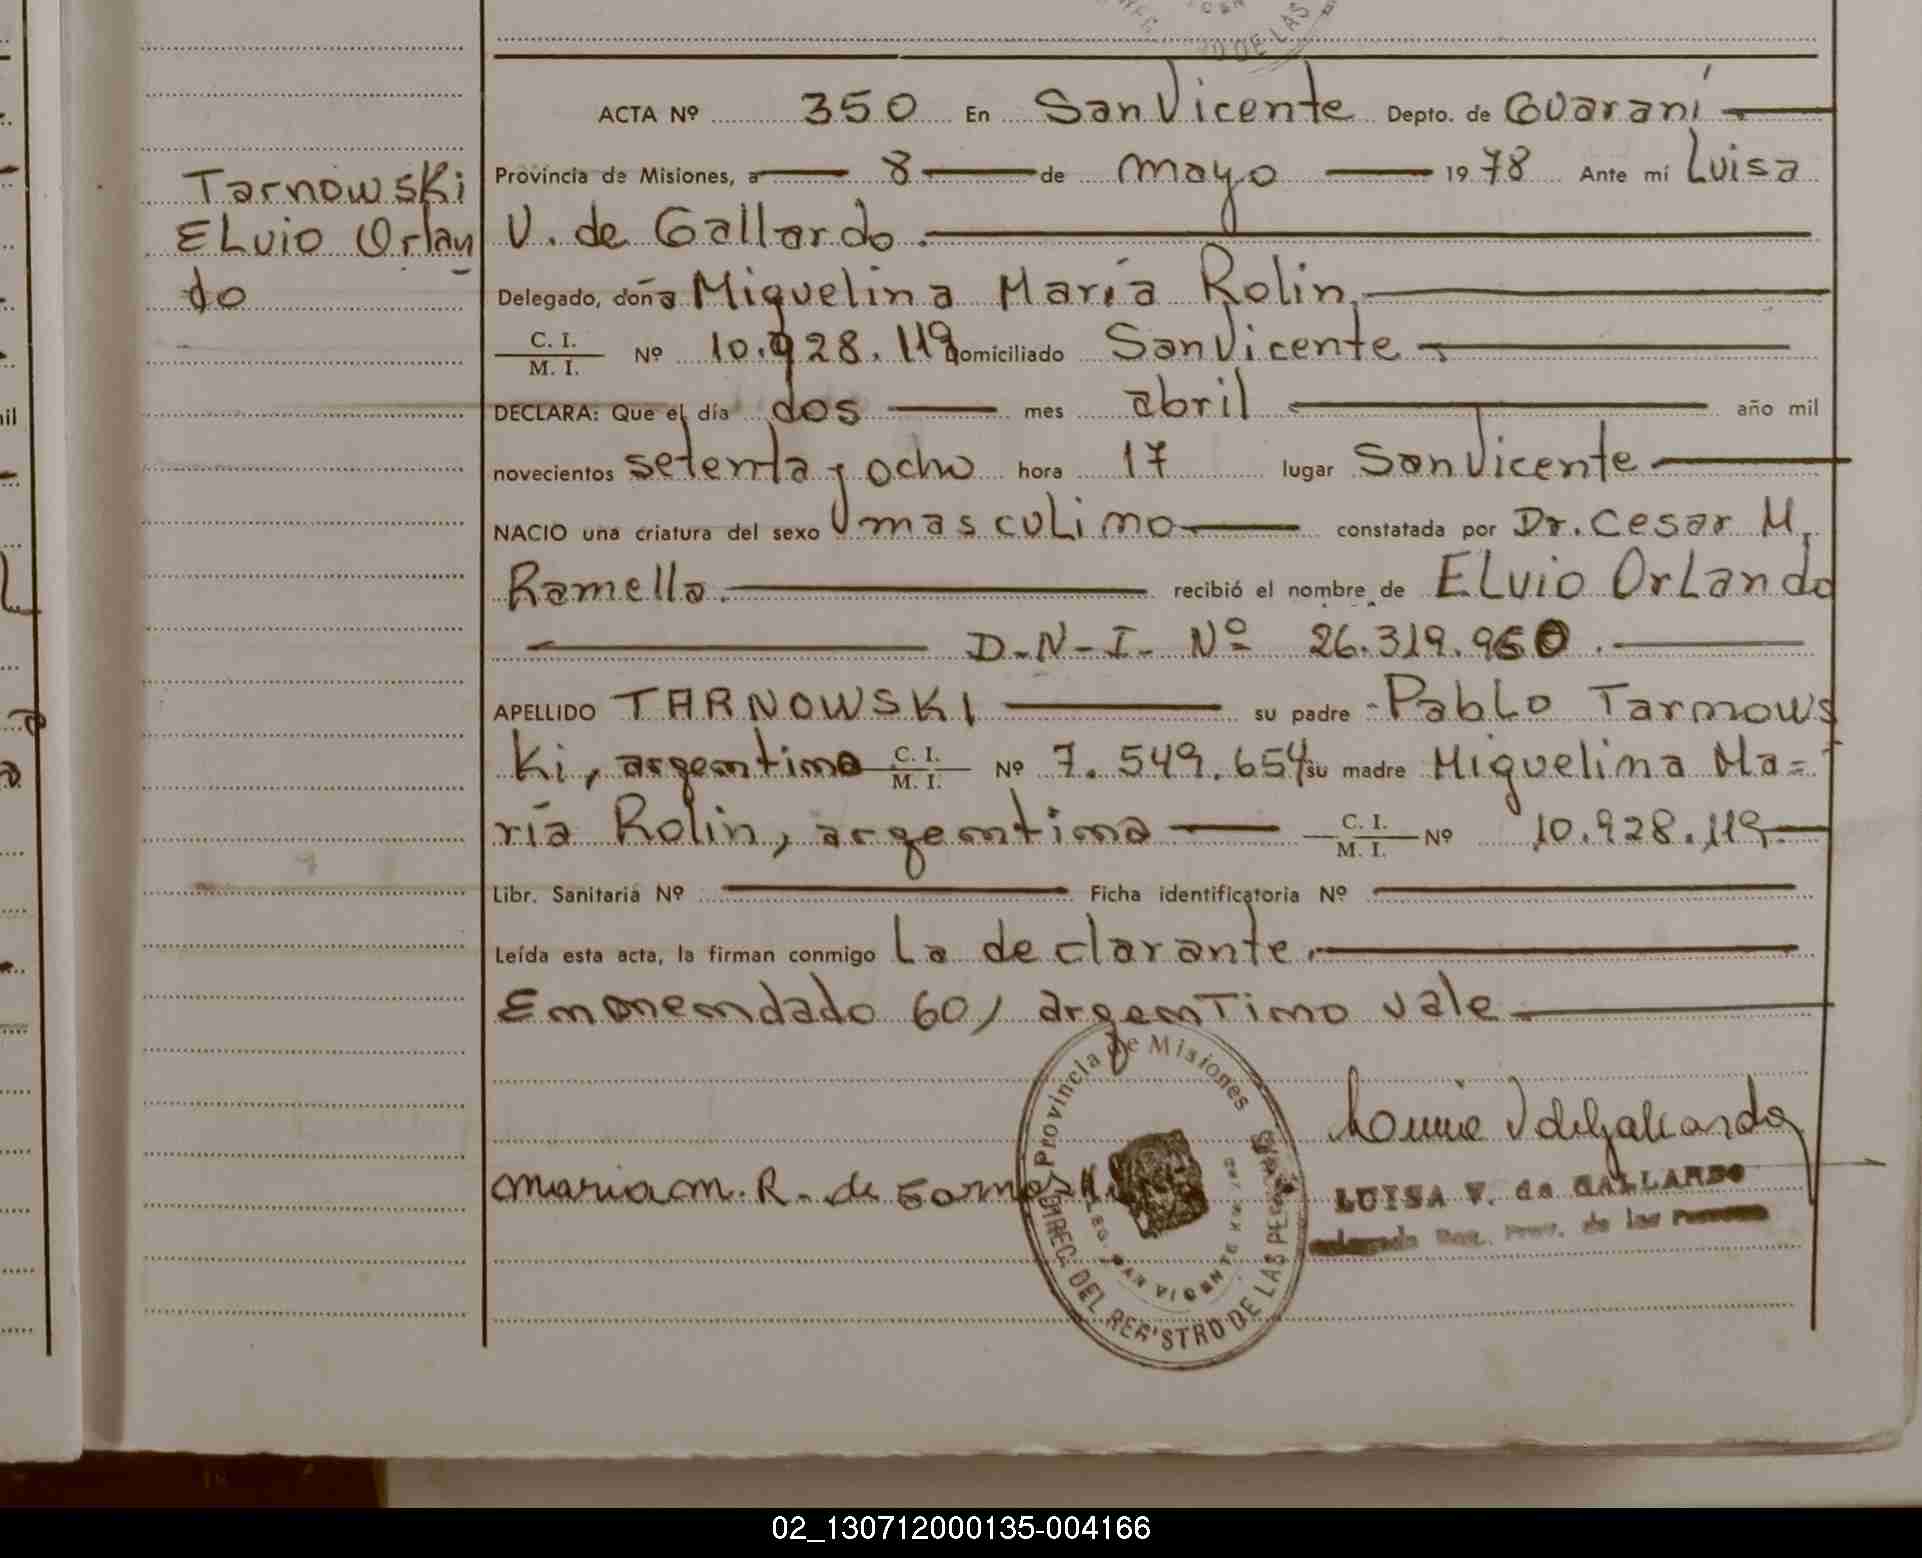 ACTA Nº 350 En San Vicente Depto. de Guaraní
Tarnowski
Elvio Orlan
do
Provincia de Misiones, a 8 de mayo 1978 Ante mí Luisa
V. de Gallardo.
Delegado, doña Miguelina María Rolin,
C. I. / M. I. Nº 10.928.119 domiciliado San Vicente
DECLARA: Que el día dos mes abril año mil
novecientos setenta y ocho hora 17 lugar San Vicente
NACIO una criatura del sexo masculino constatada por Dr. Cesar M.
Ramella. recibió el nombre de ELvio OrLando
D-N-I- Nº 26.319.960.
APELLIDO TARNOWSKI su padre Pablo Tarnows
ki, argentino C. I. / M. I. Nº 7.549.654 su madre Miguelina Ma=
ría Rolin, argentina C. I. / M. I. Nº 10.928.119
Libr. Sanitaria Nº Ficha identificatoria Nº
Leída esta acta, la firman conmigo la declarante.
Enmendado 60, argentino vale
Provincia de Misiones
maria m. R. de
LUISA V. de GALLARDO
SAN VICENTE
DIREC. DEL REGISTRO DE LAS PERSONAS
02_130712000135-004166